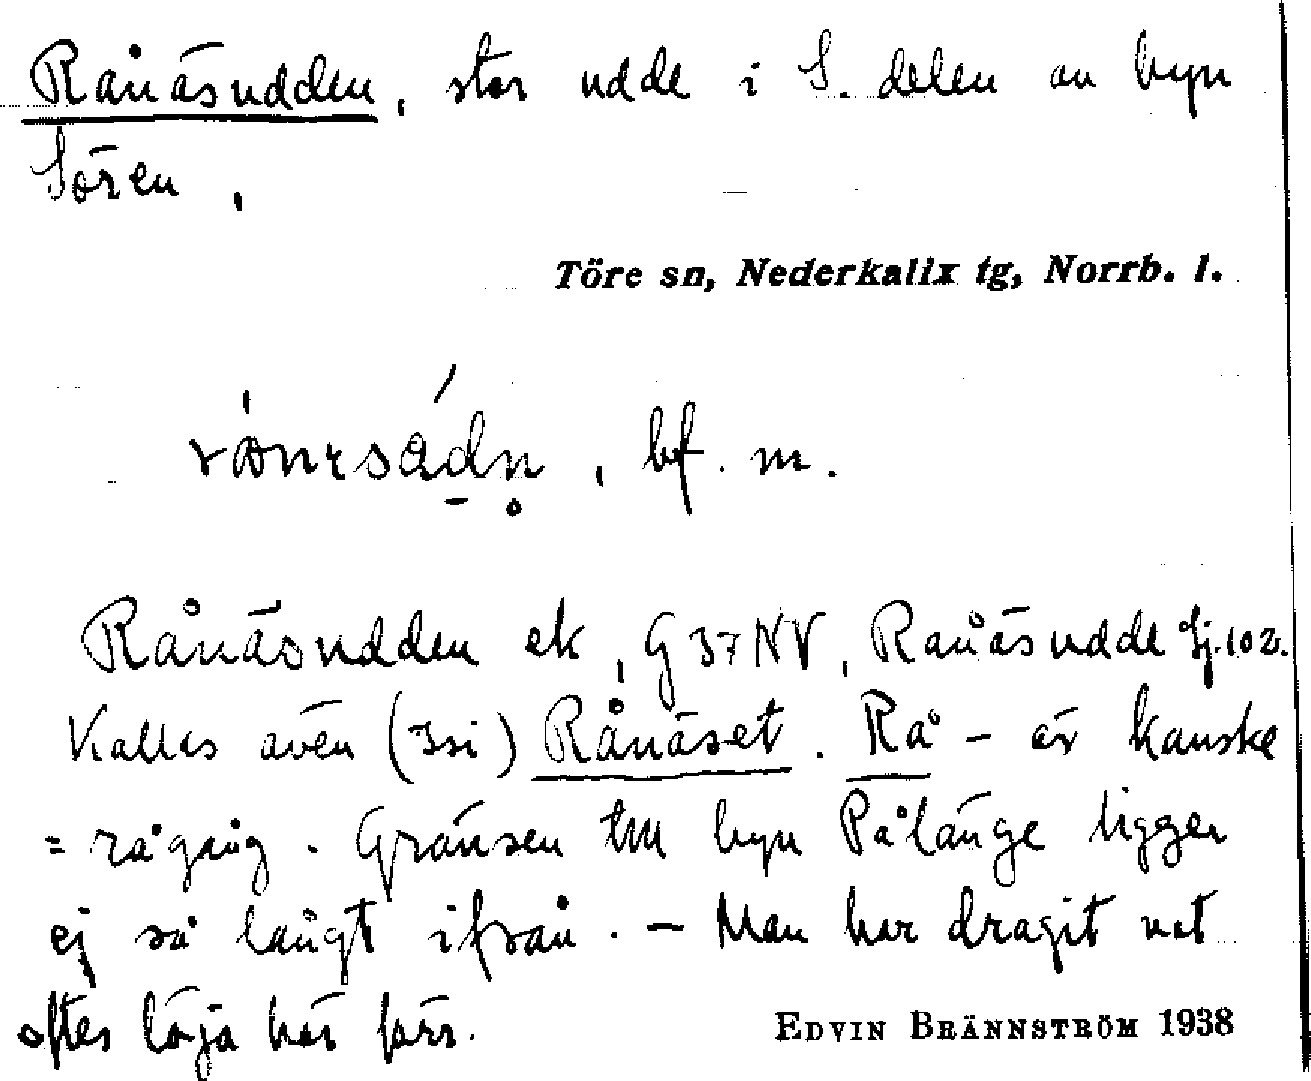 Rånäsudden, stor udde i S. delen av byn
Sören.
Töre sn, Nederkalix tg, Norrb. l.
bf. m.
Rånäsudden ek, G 37 NV, Rånäsudde Sj. 102.
Kallas även (Isi) Rånäset. Rå - är kanske
= rågång. Gränsen till byn Pålänge ligger
ej så långt ifrån. - Man har dragit not
efter löja här förr.
EDVIN BRÄNNSTRÖM 1938